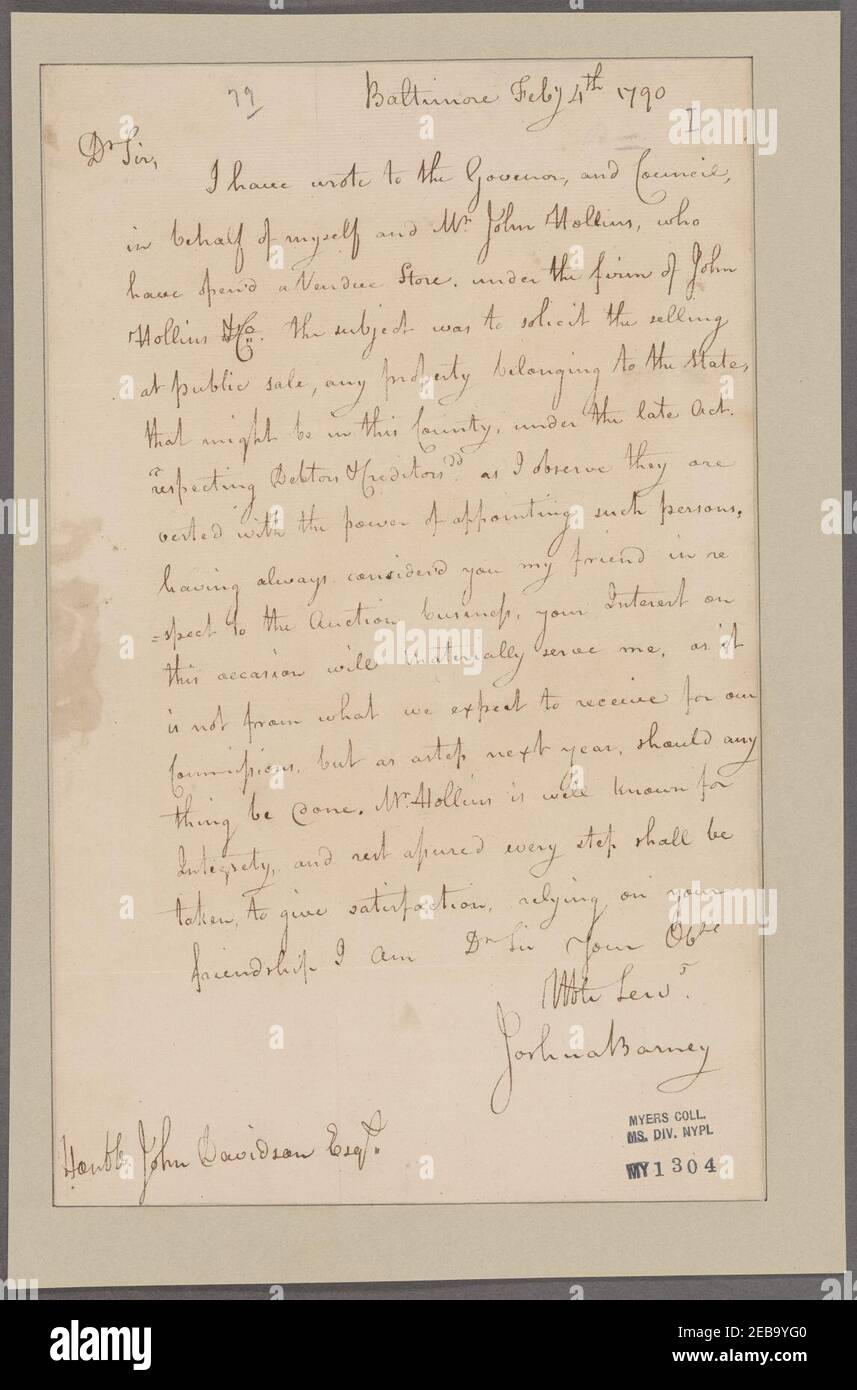 79
Baltimore Feby 4th 1790
I
Dr Sir,
I have wrote to the Govenor, and Council,
in behalf of myself and Mr John Hollins, who
have open'd a Vendue Store. under the firm of John
Hollins & Co. the subject was to solicit the selling
at public sale, any property belonging to the State,
that might be in this County, under the late Act.
"respecting Debtors & Creditors" as I observe they are
vested with the power of appointing such persons.
having always consider'd you my friend in re
=spect to the Auction business, your Interest on
this occasion will materially serve me, as it
is not from what we expect to receive for our
Commissions, but as a step next year, should any
thing be done. Mr. Hollins is well known for
Integrety, and rest assured every step shall be
taken, to give satisfaction, relying on your
friendship I am Dr Sir Your Obte
Hble Servt.
Joshua Barney
Honble. John Davidson Esqr.
MYERS COLL.
MS. DIV. NYPL
MY 1304
alamy
alamy
Image ID: 2EB9YG0
www.alamy.com